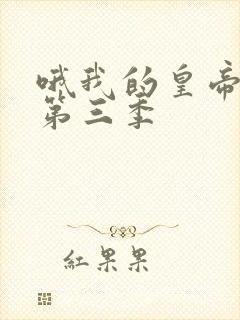 哦我的皇帝
第三季
紅果果